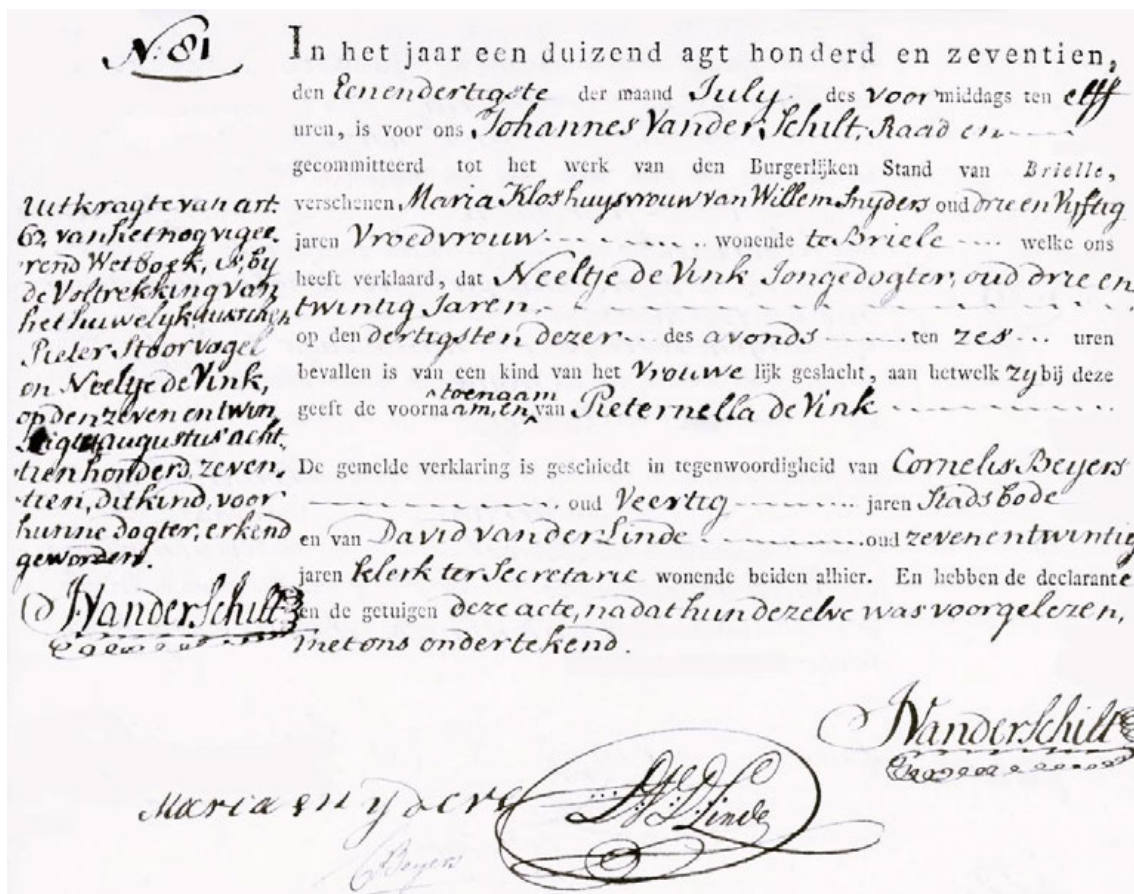 N: 81
In het jaar een duizend agt honderd en zeventien,
den Eenendertigste der maand July des voormiddags ten elff
uren, is voor ons Johannes Vander Schilt, Raad en
gecommitteerd tot het werk van den Burgerlijken Stand van Brielle,
verschenen Maria Klos huysvrouw van Willem Snyders oud drie en Vyftig
jaren Vroedvrouw wonende te Briele welke ons
heeft verklaard, dat Neeltje de Vink Jongedogter, oud drie en
twintig Jaren.
op den dertigsten dezer des avonds ten zes uren
bevallen is van een kind van het Vrouwelijk geslacht, aan hetwelk zy bij deze
toenaam
geeft de voornaam, en van Pieternella de Vink
De gemelde verklaring is geschiedt in tegenwoordigheid van Cornelis Beyers
oud Veertig jaren Stadsbode
en van David vander Linde oud zevenentwintig
jaren klerk ter Secretarie wonende beiden alhier. En hebben de declarante
en de getuigen deze acte, nadat hun dezelve was voorgelezen,
met ons ondertekend.
Uit kragte van art:
62, van het nog vigee-
rend Wetboek, is, by
de Voltrekking van
het huwelyk tusschen
Pieter Stoorvogel
en Neeltje de Vink,
op den zeven en twin
tigste augustus acht-
tien honderd, zeven-
tien, dit kind, voor
hunne dogter, erkend
geworden.
JVanderSchilt
JVanderSchilt
Maria snyders
DVDLinde
CBeyers